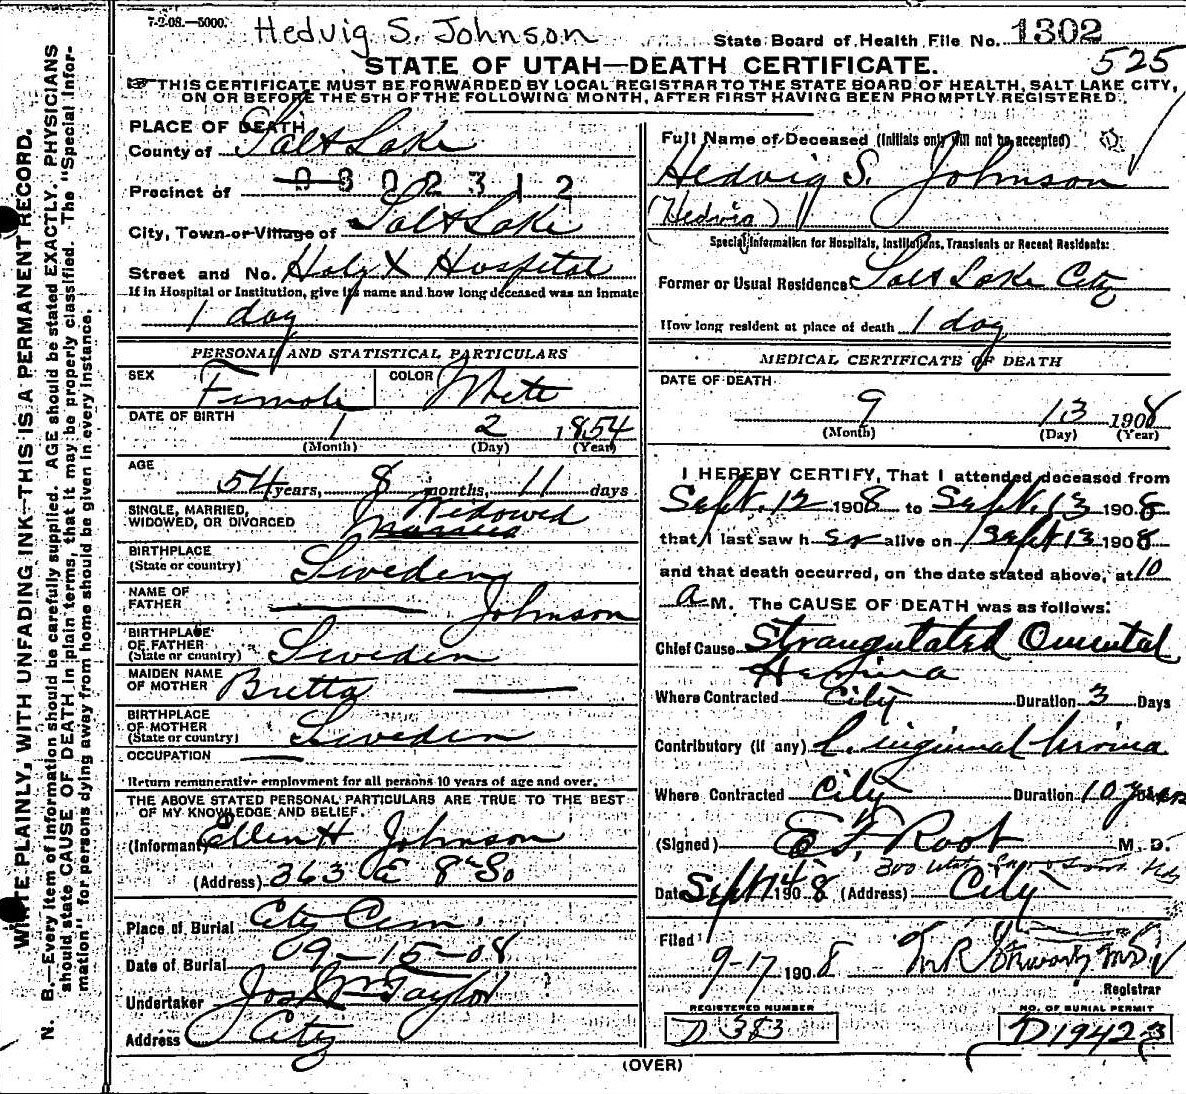 7-2-08.—5000. Hedvig S. Johnson
State Board of Health File No. 1302
525
STATE OF UTAH—DEATH CERTIFICATE.
THIS CERTIFICATE MUST BE FORWARDED BY LOCAL REGISTRAR TO THE STATE BOARD OF HEALTH, SALT LAKE CITY,
ON OR BEFORE THE 5TH OF THE FOLLOWING MONTH, AFTER FIRST HAVING BEEN PROMPTLY REGISTERED.
WRITE PLAINLY, WITH UNFADING INK—THIS IS A PERMANENT RECORD.
N. B.—Every item of information should be carefully supplied. AGE should be stated EXACTLY. PHYSICIANS
should state CAUSE OF DEATH in plain terms, that it may be properly classified. The "Special Infor-
mation" for persons dying away from home should be given in every instance.
PLACE OF DEATH
County of Salt Lake
Precinct of 0802312
City, Town or Village of Salt Lake
Street and No. Holy X Hospital
If in Hospital or Institution, give its name and how long deceased was an inmate
1 day
PERSONAL AND STATISTICAL PARTICULARS
SEX Female COLOR White
DATE OF BIRTH
1 2 1854
(Month) (Day) (Year)
AGE
54 years, 8 months, 11 days
SINGLE, MARRIED,
WIDOWED, OR DIVORCED Widowed
Married
BIRTHPLACE
(State or country) Sweden
NAME OF
FATHER Johnson
BIRTHPLACE
OF FATHER
(State or country) Sweden
MAIDEN NAME
OF MOTHER Britta
BIRTHPLACE
OF MOTHER
(State or country) Sweden
OCCUPATION —
Return remunerative employment for all persons 10 years of age and over.
THE ABOVE STATED PERSONAL PARTICULARS ARE TRUE TO THE BEST
OF MY KNOWLEDGE AND BELIEF.
(Informant) Ellen H Johnson
(Address) 363 E 8th So
Place of Burial City Cem.
Date of Burial 09-15-08
Undertaker Jos Wm Taylor
Address City
Full Name of Deceased (Initials only will not be accepted)
Hedvig S. Johnson
(Hedwig)
Special Information for Hospitals, Institutions, Transients or Recent Residents:
Former or Usual Residence Salt Lake City
How long resident at place of death 1 day
MEDICAL CERTIFICATE OF DEATH
DATE OF DEATH
9 13 1908
(Month) (Day) (Year)
I HEREBY CERTIFY, That I attended deceased from
Sept. 12 1908 to Sept. 13 1908
that I last saw h er alive on Sept 13 1908
and that death occurred, on the date stated above, at 10
a M. The CAUSE OF DEATH was as follows:
Chief Cause Strangulated Omental
Hernia
Where Contracted City Duration 3 Days
Contributory (if any) L. inguinal hernia
Where Contracted City Duration 10 years
(Signed) E. F. Root M. D.
Date Sept 14 1908 (Address) City
Filed
9-17 1908
Registrar
REGISTERED NUMBER
D 383
NO. OF BURIAL PERMIT
D19423
(OVER)